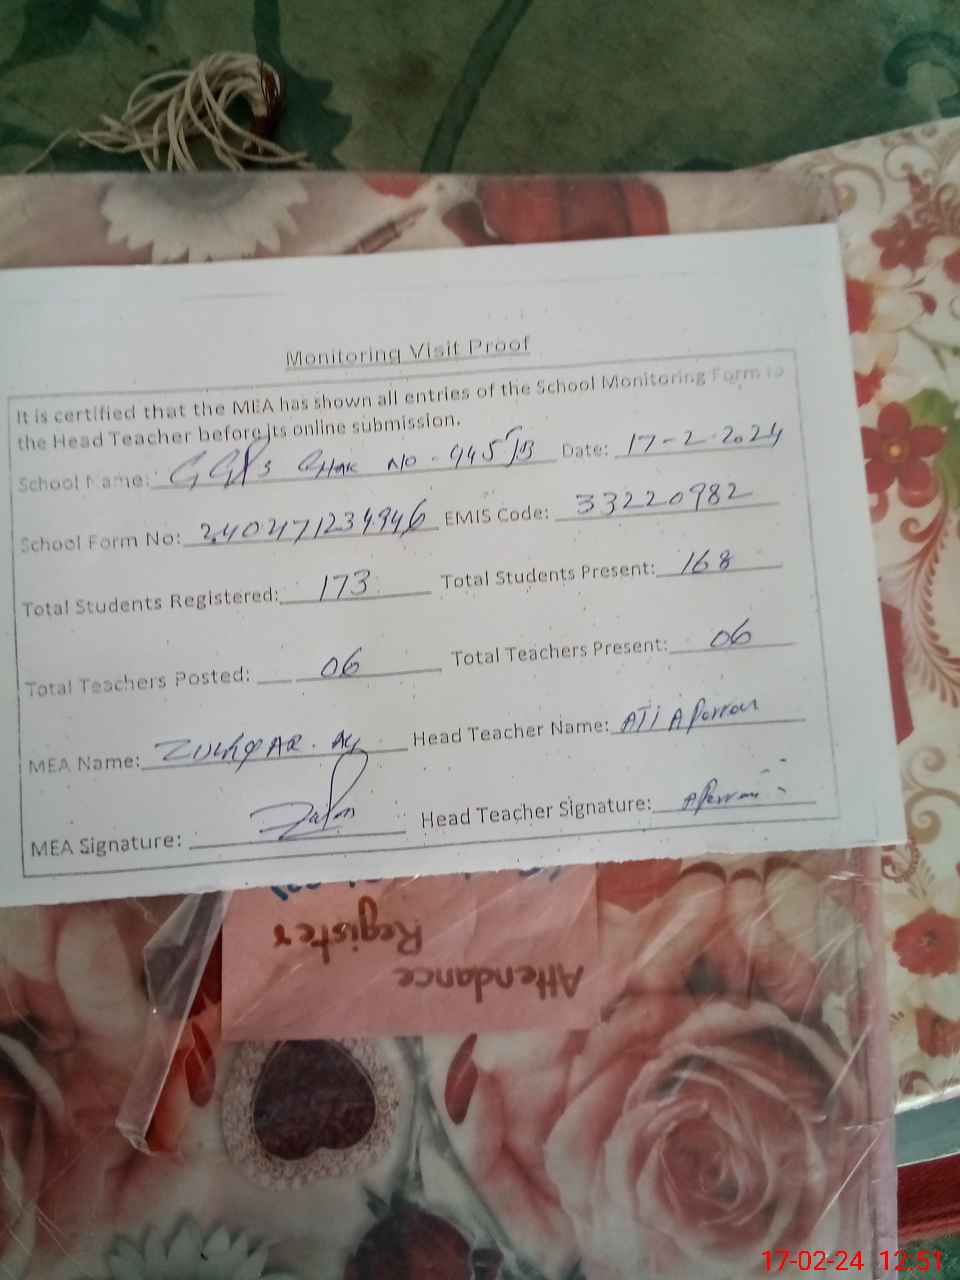 Monitoring Visit Proof
It is certified that the MEA has shown all entries of the School Monitoring Form to
the Head Teacher before its online submission.
School Name: GGPS CHAK NO - 945/JB Date: 17-2-2024
School Form No: 240471234946 EMIS Code: 33220982
Total Students Registered: 173 Total Students Present: 168
Total Teachers Posted: 06 Total Teachers Present: 06
MEA Name: Head Teacher Name:
MEA Signature: Head Teacher Signature:
Attendance
Register
17-02-24 12:51